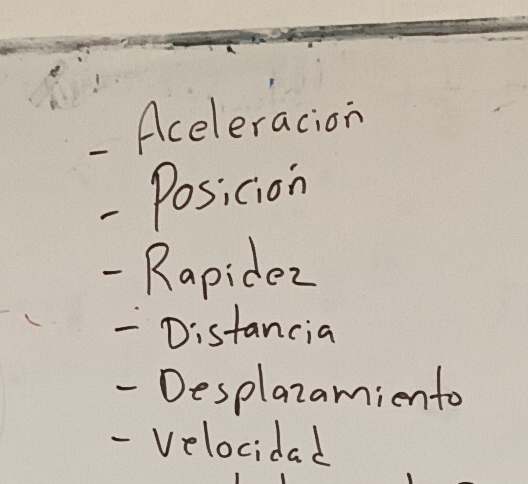 - Aceleración
- Posición
- Rapidez
- Distancia
- Desplazamiento
- Velocidad